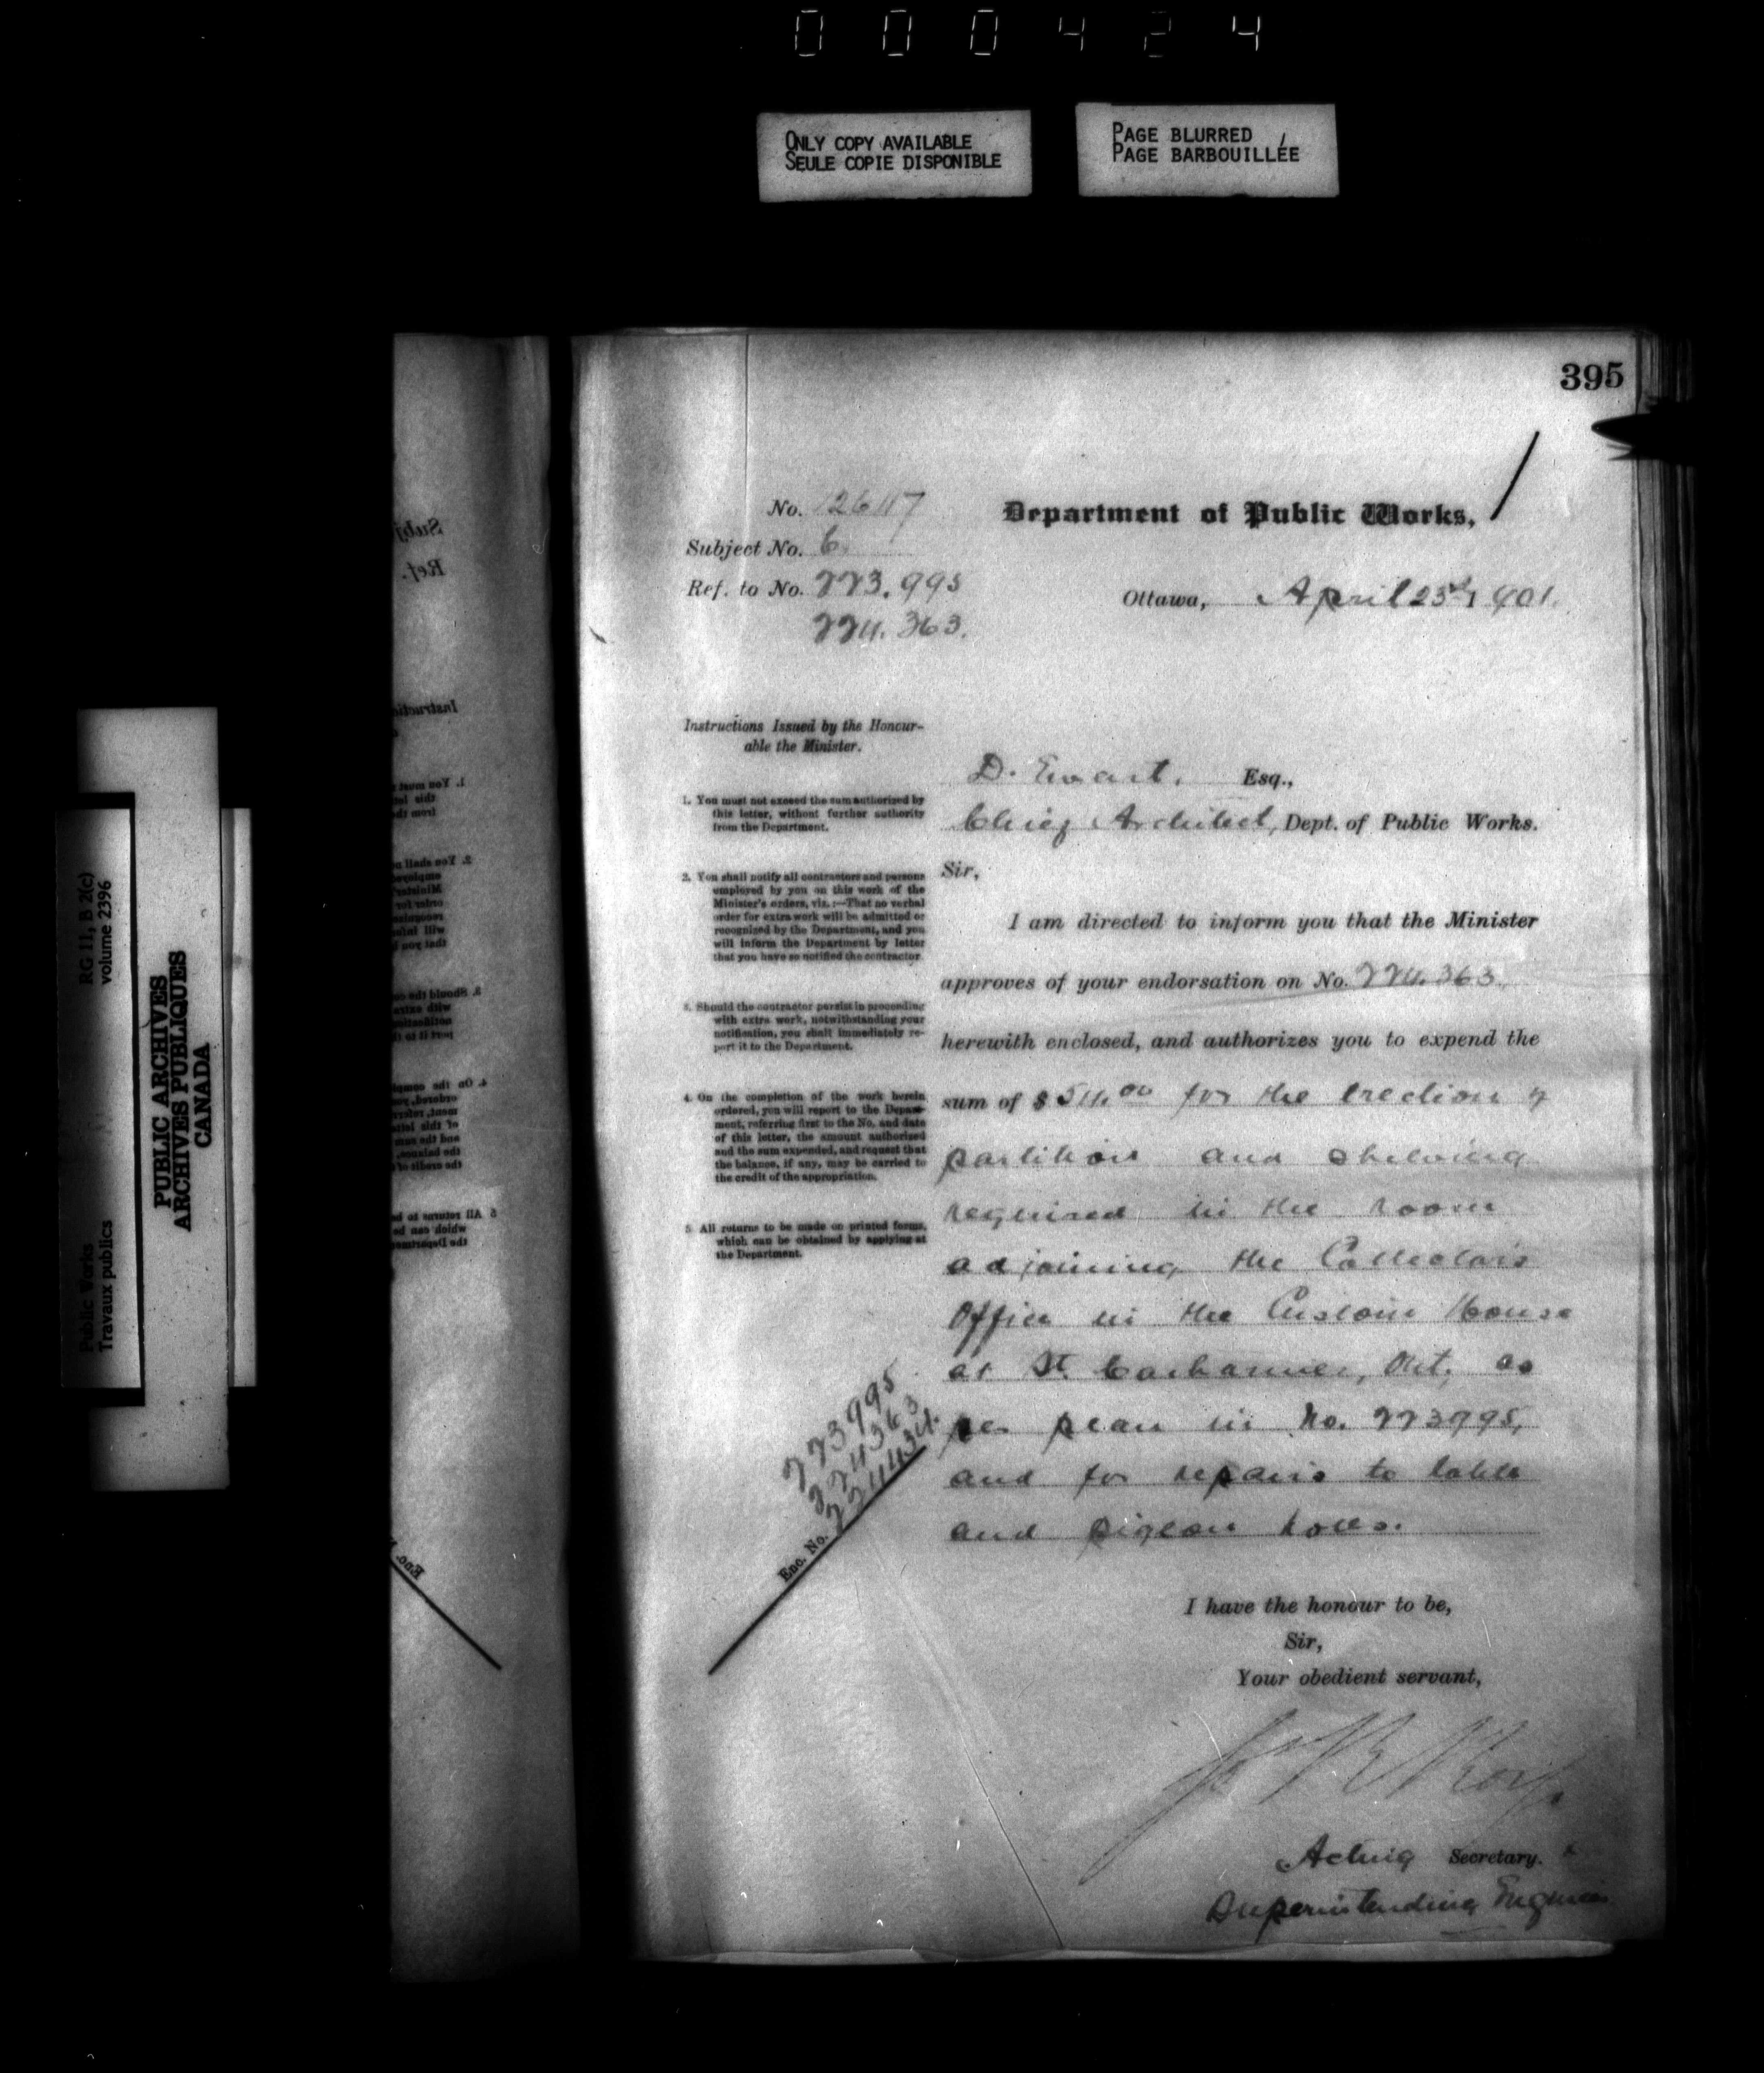 000424
ONLY COPY AVAILABLE
SEULE COPIE DISPONIBLE
PAGE BLURRED
PAGE BARBOUILLÉE
Public Works
Travaux publics
RG 11, B 2(c)
volume 2396
PUBLIC ARCHIVES
ARCHIVES PUBLIQUES
CANADA
395
No. 126117
Subject No. 6
Ref. to No. 223.995
224.363.
Department of Public Works,
Ottawa, April 23rd 1901.
Instructions Issued by the Honour-
able the Minister.
1. You must not exceed the sum authorized by
this letter, without further authority
from the Department.
2. You shall notify all contractors and persons
employed by you on this work of the
Minister's orders, viz.:—That no verbal
order for extra work will be admitted or
recognized by the Department, and you
will inform the Department by letter
that you have so notified the contractor.
3. Should the contractor persist in proceeding
with extra work, notwithstanding your
notification, you shall immediately re-
port it to the Department.
4. On the completion of the work herein
ordered, you will report to the Depart-
ment, referring first to the No. and date
of this letter, the amount authorized
and the sum expended, and request that
the balance, if any, may be carried to
the credit of the appropriation.
5 All returns to be made on printed forms,
which can be obtained by applying at
the Department.
Enc. No. 223995
224363
224434.
D. Ewart, Esq.,
Chief Architect, Dept. of Public Works.
Sir,
I am directed to inform you that the Minister
approves of your endorsation on No. 224.363
herewith enclosed, and authorizes you to expend the
sum of $54.00 for the erection of
partition and shelving
required in the room
adjoining the Collector's
Office in the Custom House
at St. Catharines, Ont, as
per plan in No. 223995,
and for repairs to table
and pigeon holes.
I have the honour to be,
Sir,
Your obedient servant,
Acting Secretary.
Superintending Engineer